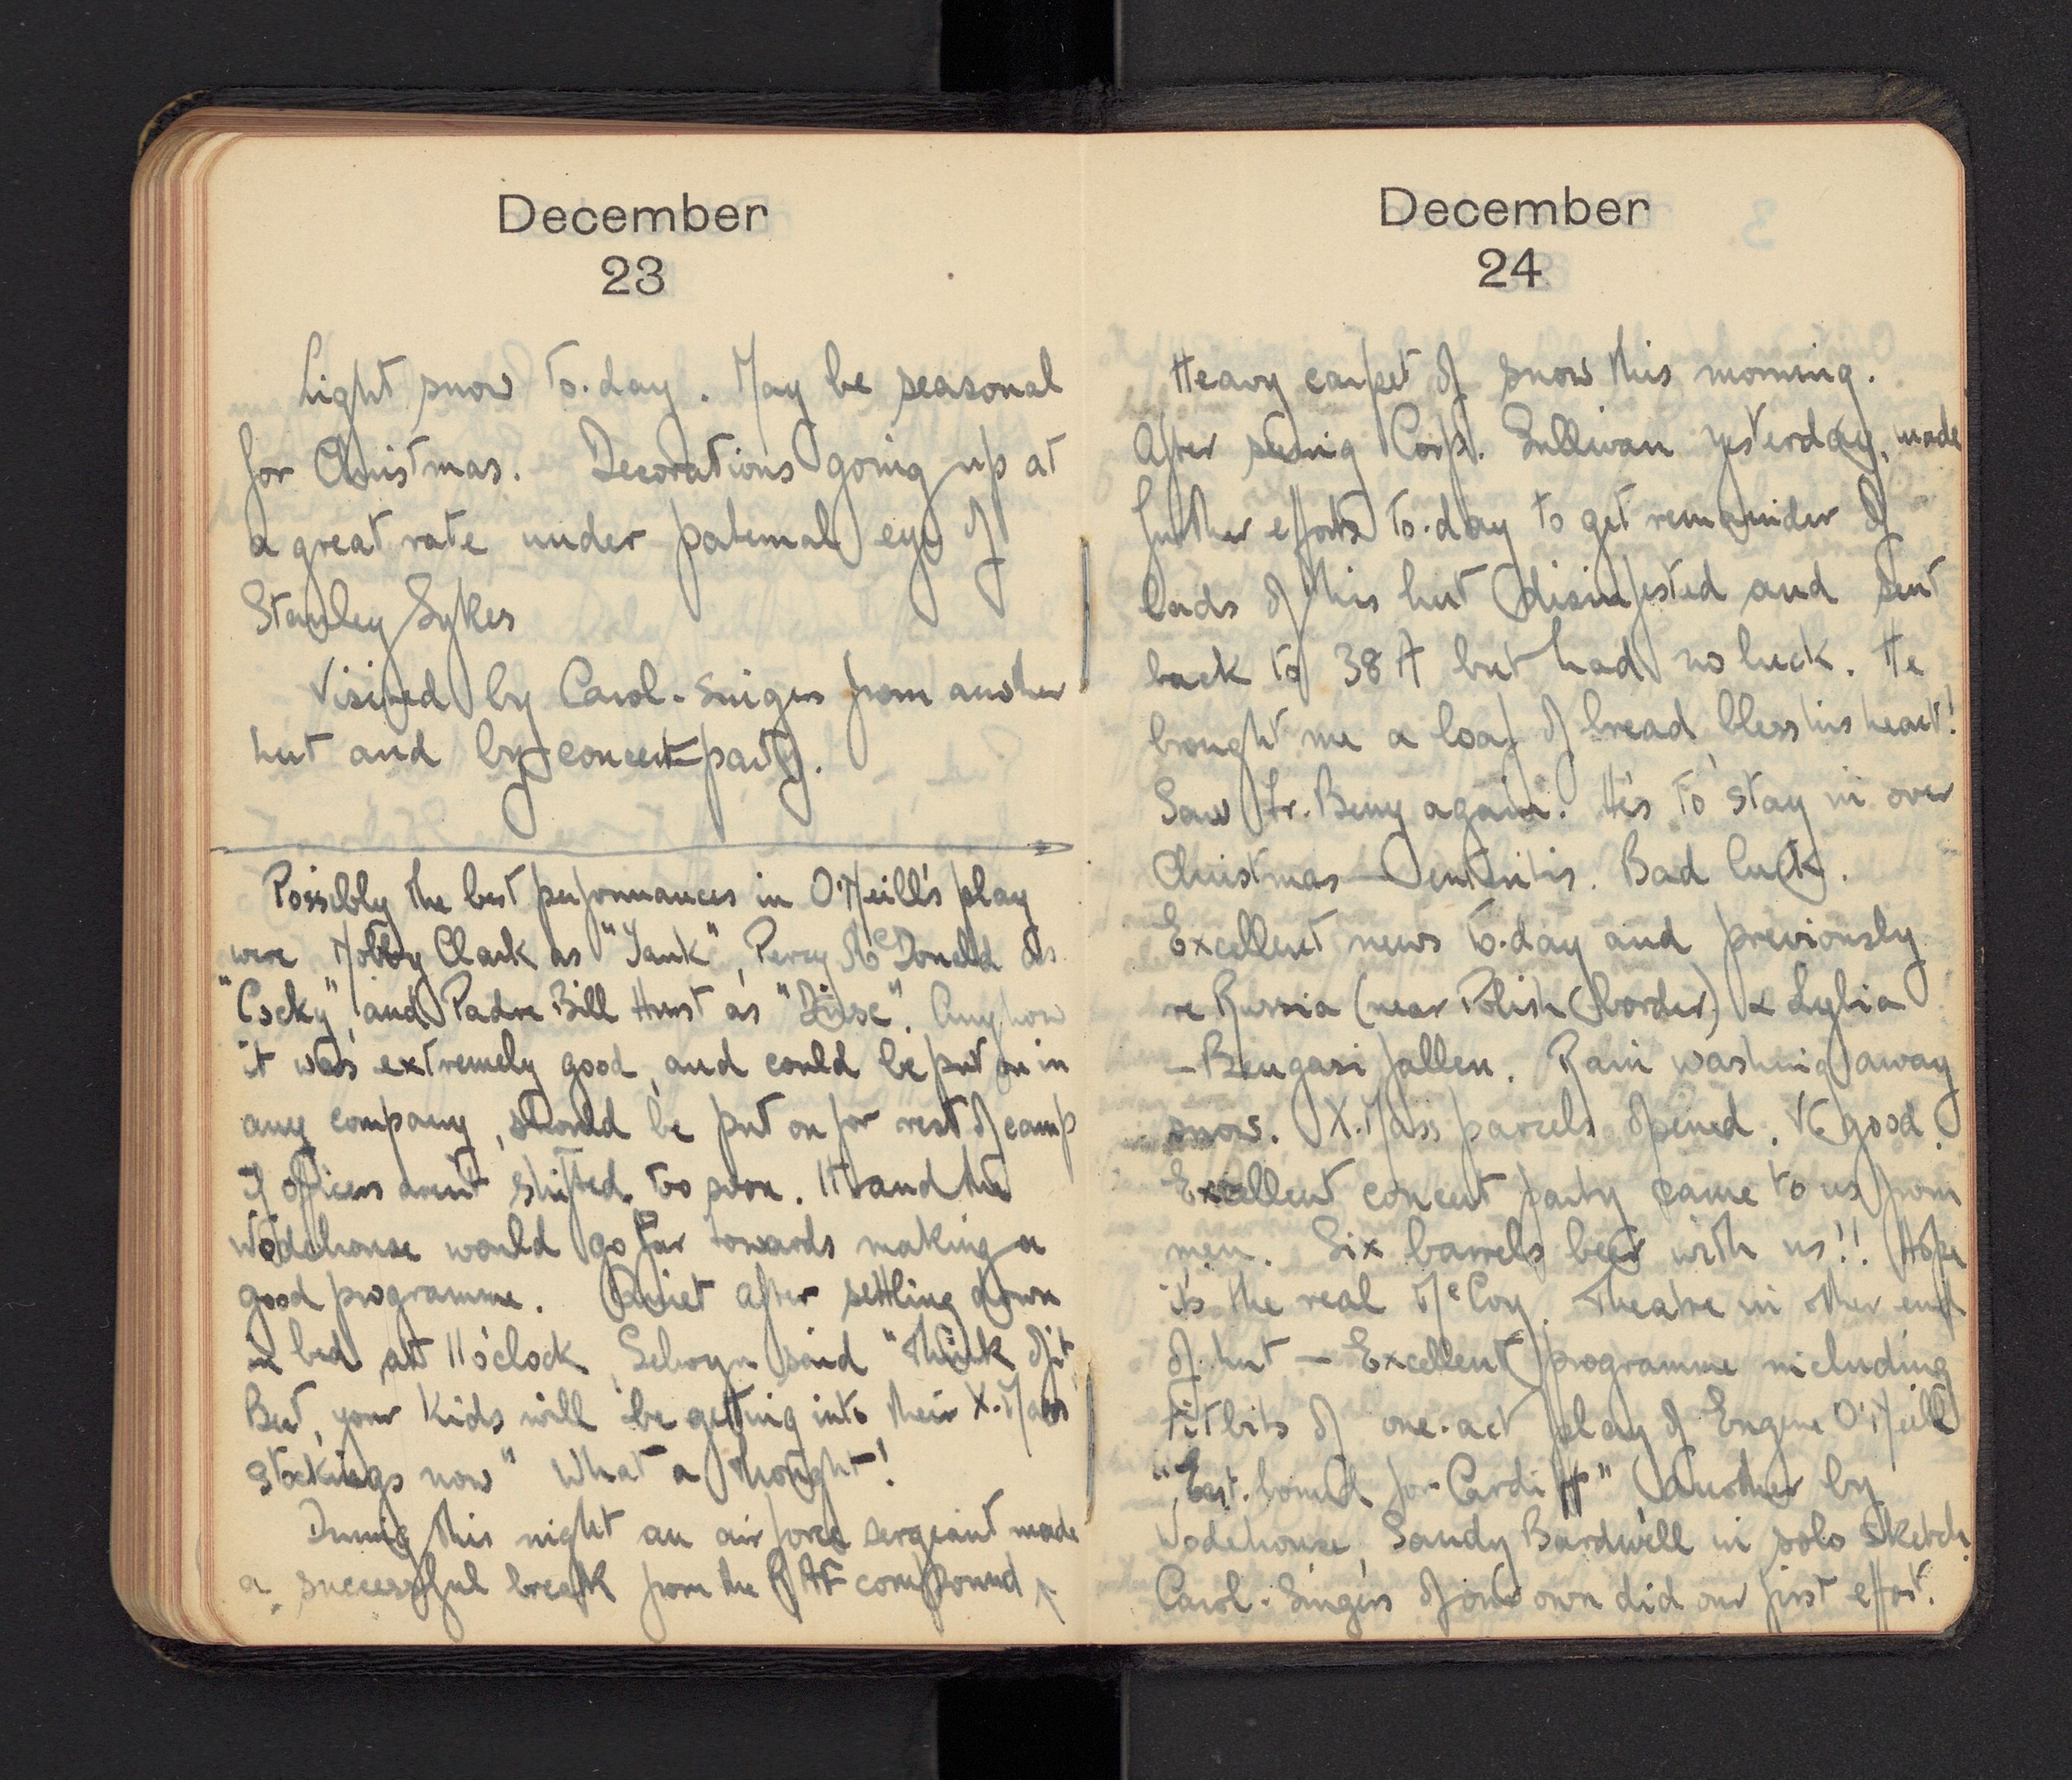 December
23
Light snow to-day. May be seasonal
for Christmas. Decorations going up at
a great rate under paternal eye of
Stanley Sykes
Visited by Carol-singers from another
hut and by concert-party.
Possibly the best performances in O'Neill's play
were Nobby Clark as "Yank", Percy McDonald as
"Cocky", and Padre Bill Hurst as "Drisc". Anyhow
it was extremely good, and could be put on in
any company, should be put on for rest of camp
if officers aren't shifted too soon. It and the
Wodehouse would go far towards making a
good programme. Quiet after settling down
in bed at 11 o'clock, Selwyn said "Think of it
Bert, your kids will be getting into their X-Mas
stockings now" What a thought!
During this night an air force sergeant made
a successful break from the RAF compound
December
24
Heavy carpet of snow this morning.
After seeing Corp. Sullivan yesterday, made
further efforts to-day to get remainder of
lads of his hut disinfested and sent
back to 38A but had no luck. He
brought me a loaf of bread, bless his heart!
Saw Lr. Beny again. He's to stay in over
Christmas - Dermatitis. Bad luck.
Excellent news to-day and previously
re Russia (near Polish border) & Lybia
- Bengasi fallen. Rain washing away
snow. X-Mass parcels opened. VG good.
Excellent concert party came to us from
men. Six barrels beer with us!! Hope
it's the real McCoy. Theatre in other end
of hut - Excellent programme including
titbits of one-act play of Eugene O'Neill
"East-bound for Cardiff" another by
Wodehouse, Sandy Bardwell in solo sketch.
Carol-Singers of our own did our first effort.